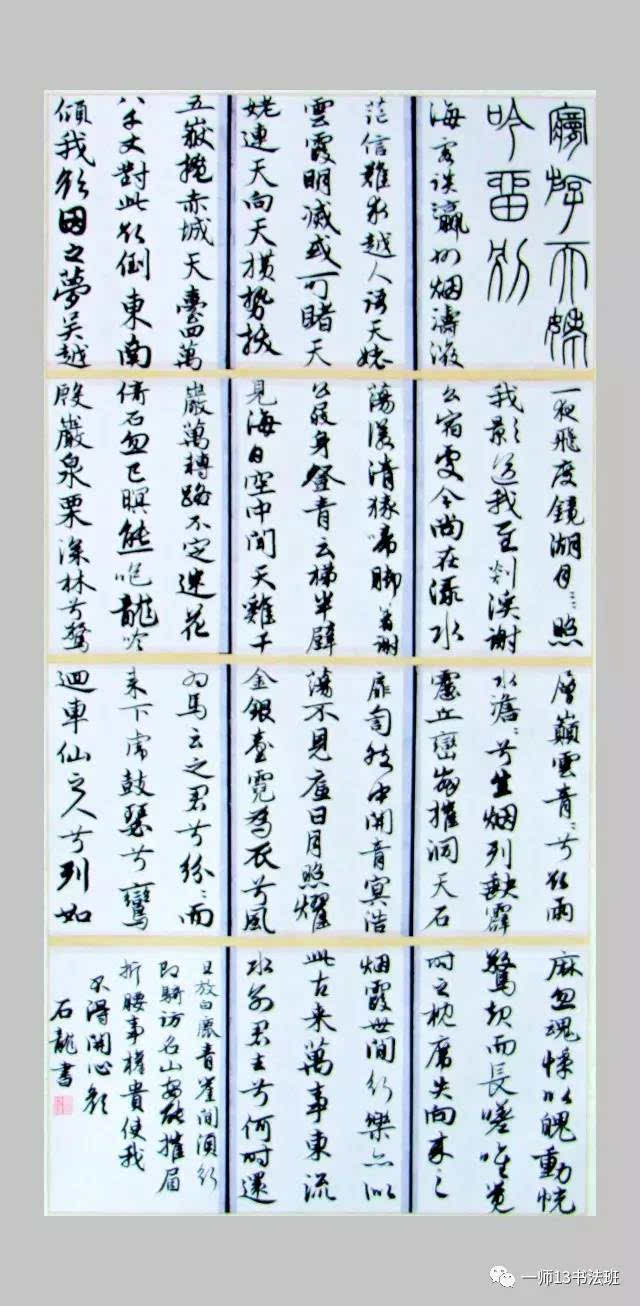 夢游天姥
吟留別
海客談瀛州烟濤微
茫信難求越人語天姥
雲霞明滅或可睹天
姥連天向天横勢拔
五嶽掩赤城天臺四萬
八千丈對此欲倒東南
傾我欲因之夢吳越
一夜飛度鏡湖月〻照
我影送我至剡溪謝
公宿處今尚在渌水
蕩漾清猿啼脚着謝
公屐身登青云梯半壁
見海日空中聞天雞千
巖萬轉路不定迷花
倚石忽已暝熊咆龍吟
殷巖泉栗深林兮驚
層巔雲青〻兮欲雨
水澹〻兮生烟列缺霹
靂丘巒崩摧洞天石
扉訇然中開青冥浩
蕩不見底日月照燿
金銀臺霓為衣兮風
為馬云之君兮紛〻而
来下虎鼓瑟兮鸞
迴車仙之人兮列如
麻忽魂悸以魄動怳
驚起而長嗟唯覺
時之枕席失向来之
烟霞世間行樂亦如
此古来萬事東流
水別君去兮何時還
且放白鹿青崖間須行
即騎訪名山安能摧眉
折腰事權貴使我
不得開心顔
石龍書
一师13书法班